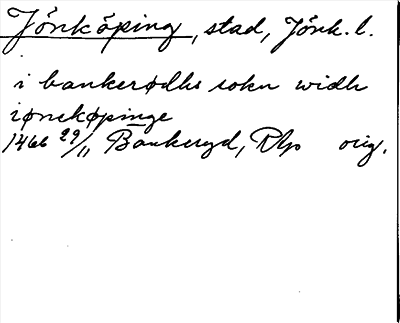 Jönköping, stad, Jönk. l.
i bankerødhs sokn widh
iønekøpinge
1466 29/11 Bankeryd, RAp orig.